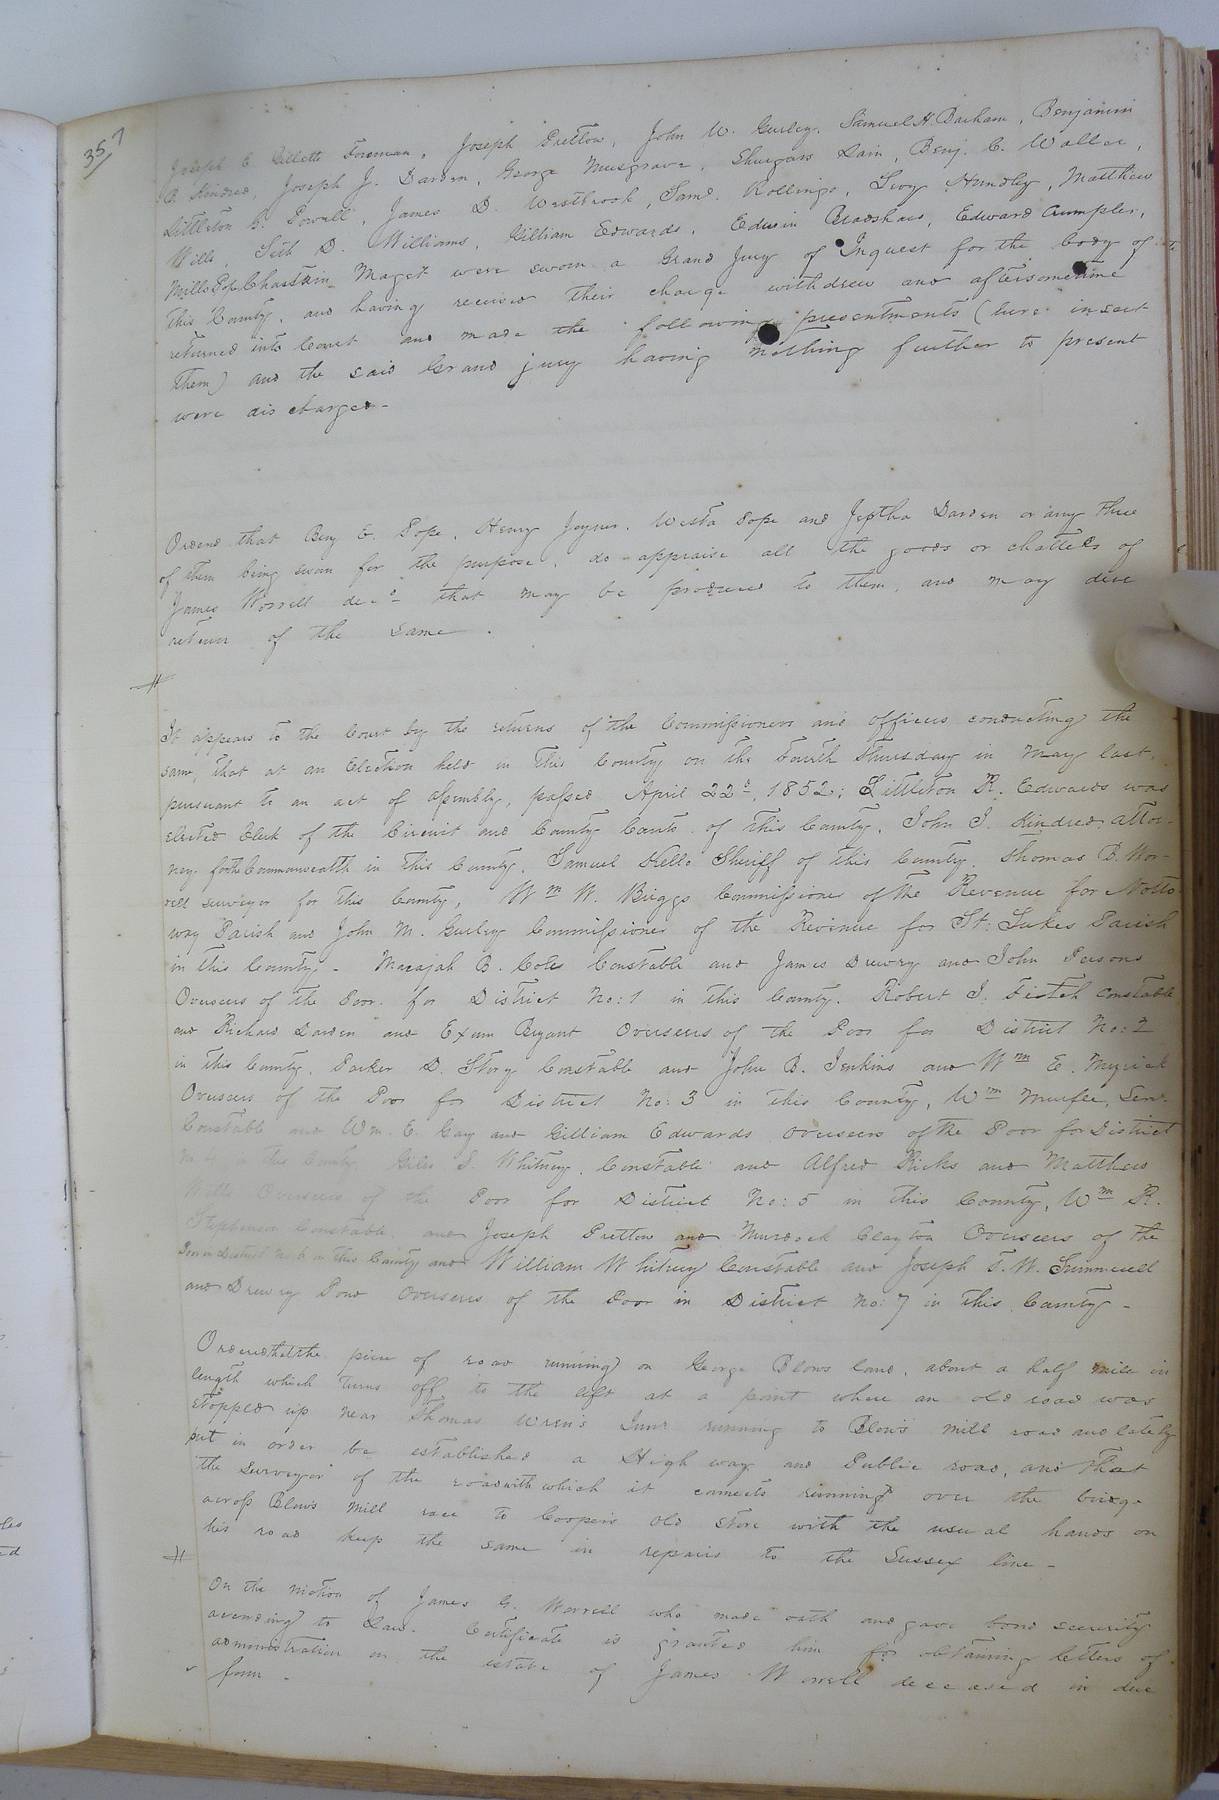 357
Joseph E Gillette Foreman, Joseph Pretlow, John W. Gurley, Samuel H Barham, Benjamin
B. Kindred, Joseph J. Darden, George Musgrave, Lain, Benj. C. Waller,
Littleton Powell, James D. Westbrook, Saml Rollings, Levy Hundley, Matthew
Wills, Seth D. Williams, Gilliam Edwards, Edwin Bradshaw, Edward Cumpler,
Mills Pope Chastain Maget were sworn a Grand Jury of Inquest for the body of
this County, and having received their charge withdrew and after sometime
returned into Court and made the following presentments (here insert
them) and the said Grand jury having nothing further to present
were discharged-
Ordered that Benj E. Pope, Henry Joyner, Pope and Jeptha Darden or any three
of them being sworn for the purpose, do appraise all the goods or chattels of
James Worrell decd that may be produced to them, and may due
return of the same.
It appears to the Court by the returns of the Commissioners and officers conducting the
same, that at an Election held in this County on the Fourth Thursday in May last,
pursuant to an act of assembly, passed April 22d, 1852; Littleton R. Edwards was
elected Clerk of the Circuit and County Courts of this County, John J. Kindred attor-
ney for the Commonwealth in this County, Samuel Kello Sheriff of this County, Thomas B. Wor-
rell surveyor for this County, Wm W. Briggs Commissioner of the Revenue for Notto
way Parish and John M. Gurley Commissioner of the Revinue for St: Lukes Parish
in this County - Macajah B. Coles Constable and James Drewry and John Persons
Overseers of the Poor for District No: 1 in this County. Robert J. Constable
and Richard Darden and Exum Bryant Overseers of the Poor for District No: 2
in this County, Parker D. Story Constable and John B. Jenkins and Wm E. Myrick
Overseers of the Poor for District No: 3 in this County, Wm Murfee, Senr.
Constable and Wm. E. Gay and Gilliam Edwards overseers of the Poor for District
No 4 in this County Giles S. Whitney, Constable and Alfred Ricks and Matthew
Wills Overseers of the Poor for District No: 5 in this County, Wm R.
Stephenson Constable and Joseph Pretlow and Murdock Clayton Overseers of the
Poor in District No 6 in this County and William Whitney Constable and Joseph T. W. Summerell
and Drewry Pond Overseers of the Poor in District No: 7 in this County -
Ordered that the piece of road running on George Blows land, about a half mile in
length which turns off to the left at a point where an old road was
stopped up near Thomas Wren's running to Blow's mill road and lately
put in order be established a High way and Public road, and that
the Surveyor of the road with which it connects running over the bridge
across Blows Mill race to Coopers old store with the usual hands on
his road keep the same in repairs to the Sussex line -
On the motion of James G. Worrell who made oath and gave bond security
according to Law. Certificate is granted him for obtaining letters of
administration on the estate of James Worrell deceased in due
form -